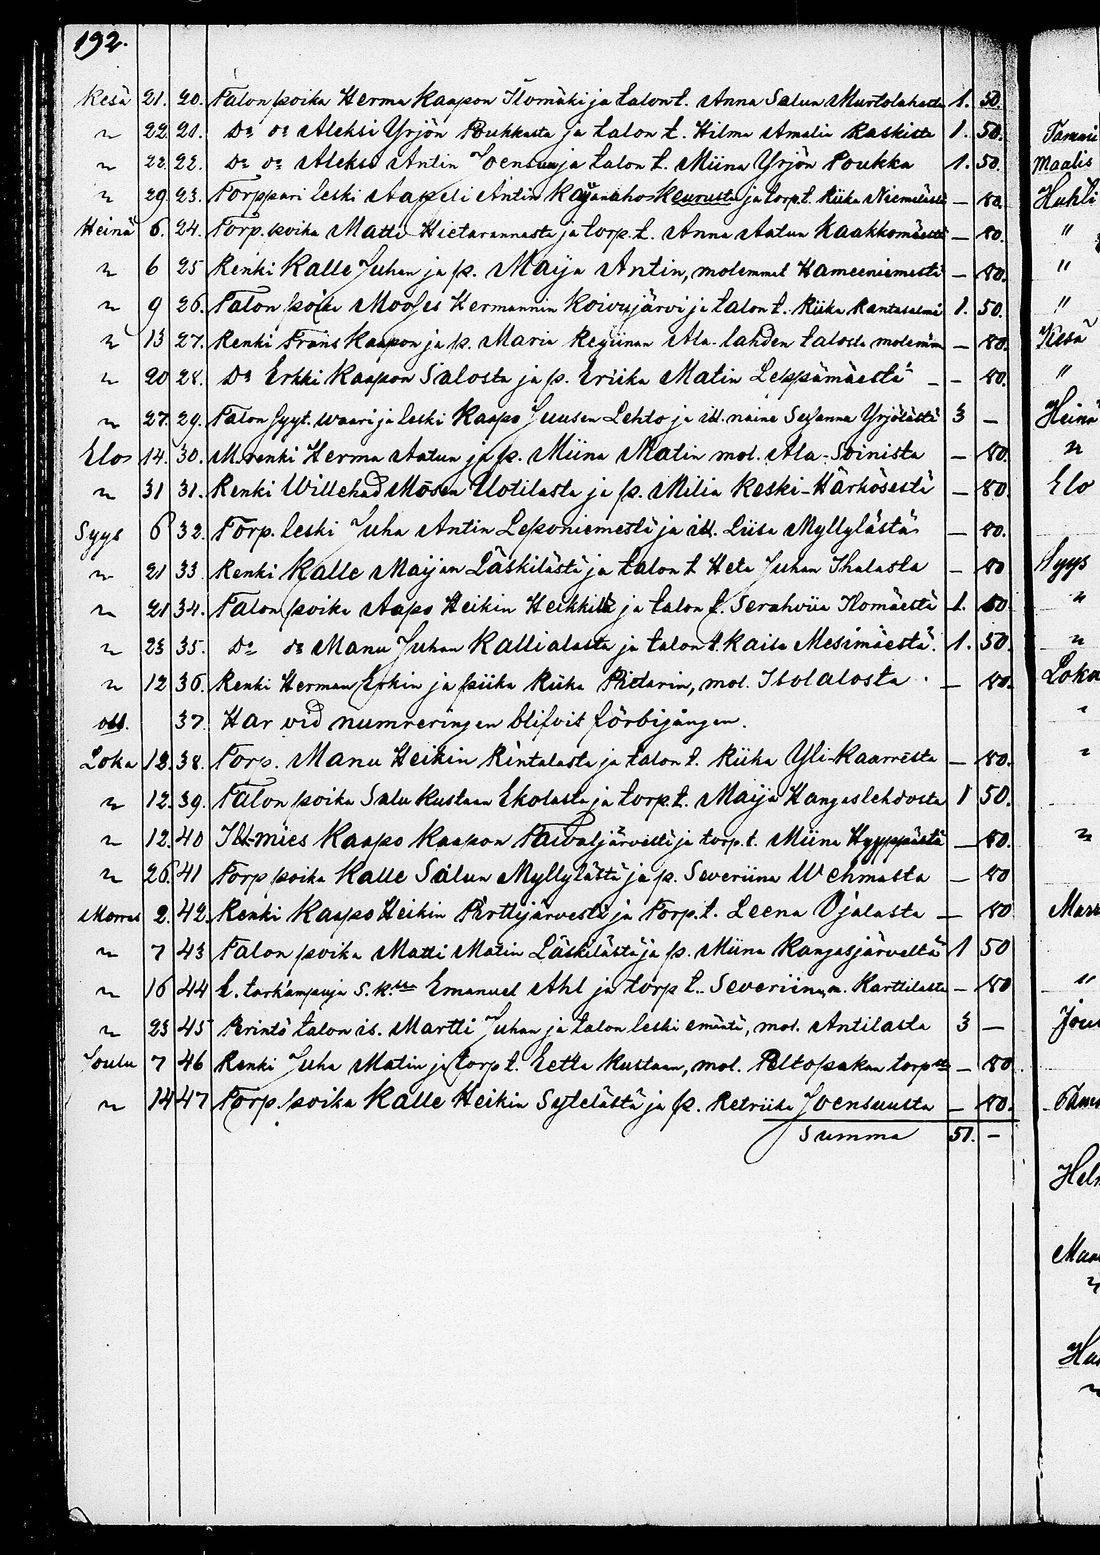 192.
Kesä 21. 20. Talon poika Herma Kaapon Ilomäki ja talon t. Anna Salun Murtolahasta 1. 50.
" 22. 21. Do do Aleksi Yrjön Poukkasta ja talon t. Hilma Amalia Raskista 1. 50.
" 22. 22. Do do Aleksi Antin Joensuu ja talon t. Miina Yrjön Poukka 1. 50.
" 29. 23. Torppari leski Aapeli Antin Kajanaho Keurusta ja torp.t. Riika Niemelästä — 80.
Heinä 6. 24. Torp. poika Matti Hietarannasta ja torp. t. Anna Aatun Kaakkomäestä — 80.
" 6 25 Renki Kalle Juhan ja p. Maija Antin, molemmat Hameeniemestä — 80.
" 9 26. Talon poika Mooses Hermannin Koivujärvi ja talon t. Riika Rantasalmi 1. 50.
" 13 27. Renki Frans Kaapon ja p. Maria Regiinan Ala-lahden talosta molemm — 80.
" 20 28. Do Erkki Kaapon Salosta ja p. Eriika Matin Leppämäestä - - 80.
" 27. 29. Talon syyt. waari ja leski Kaapo Juusen Lehto ja itt. naine Susanna Yrjölästä 3 —
Elos 14. 30. M. renki Herma Aatun ja p. Miina Matin mol. Ala-Soinista — 80.
" 31 31. Renki Willehad Mosen Uotilasta ja p. Milia Keski-Kärkösestä — 80.
Syys 6 32. Torp. leski Juha Antin Leponiemestä ja itt. Liisa Myllylästä — 80.
" 21 33 Renki Kalle Maijan Läskilästä ja talon t Heta Juhan Ihalasta — 80
" 21 34. Talon poika Aapo Heikin Heikkilä ja talon t. Serahviia Ilomäestä 1. 50.
" 23 35. Do do Manu Juhan Kallialasta ja talon t. Kaisa Mesimäestä. 1. 50.
" 12 36. Renki Herman Erkin ja piika Riika Pietarin, mol. Isolalosta — 80.
obs. 37. Har vid numreringen blifvit förbigången.
Loka 12. 38. Torp. Manu Heikin Rintalasta ja talon t. Riika Yli-Kaarresta — 80.
" 12. 39. Talon poika Salu Kustaan Ekolasta ja torp.t. Maija Kangaslehdosta 1 50.
" 12. 40 Itt-mies Kaapo Kaapon Paivaljärvestä ja torp.t. Miina Hyyppästä — 80.
" 26. 41 Torp poika Kalle Salun Myllylästä ja p. Severiina Wehmasta — 80
Marras 2. 42. Renki Kaapo Heikin Pirttijärvestä ja Torp.t. Leena Ojalasta — 80
" 7 43 Talon poika Matti Matin Läskilästä ja p. Miina Kangasjärveltä 1 50
" 16 44 Emanuel Ahl ja torp t. Severiina, m. Karttilasta — 80
" 23 45 Perintö talon is. Martti Juhan ja talon leski emäntä, mol. Antilasta 3 —
Joulu 7 46 Renki Juha Matin ja torp t. Eetta Kustaan, mol. Peltopakan torp — 80
" 14 47 Torp. poika Kalle Heikin Sytelästä ja p. Retriika Joensuusta — 80.
Summa 51. —
Tammi
Maalis
Huhti
"
"
"
Kesä
"
Heinä
"
Elo
Syys
"
"
Loka
"
"
"
"